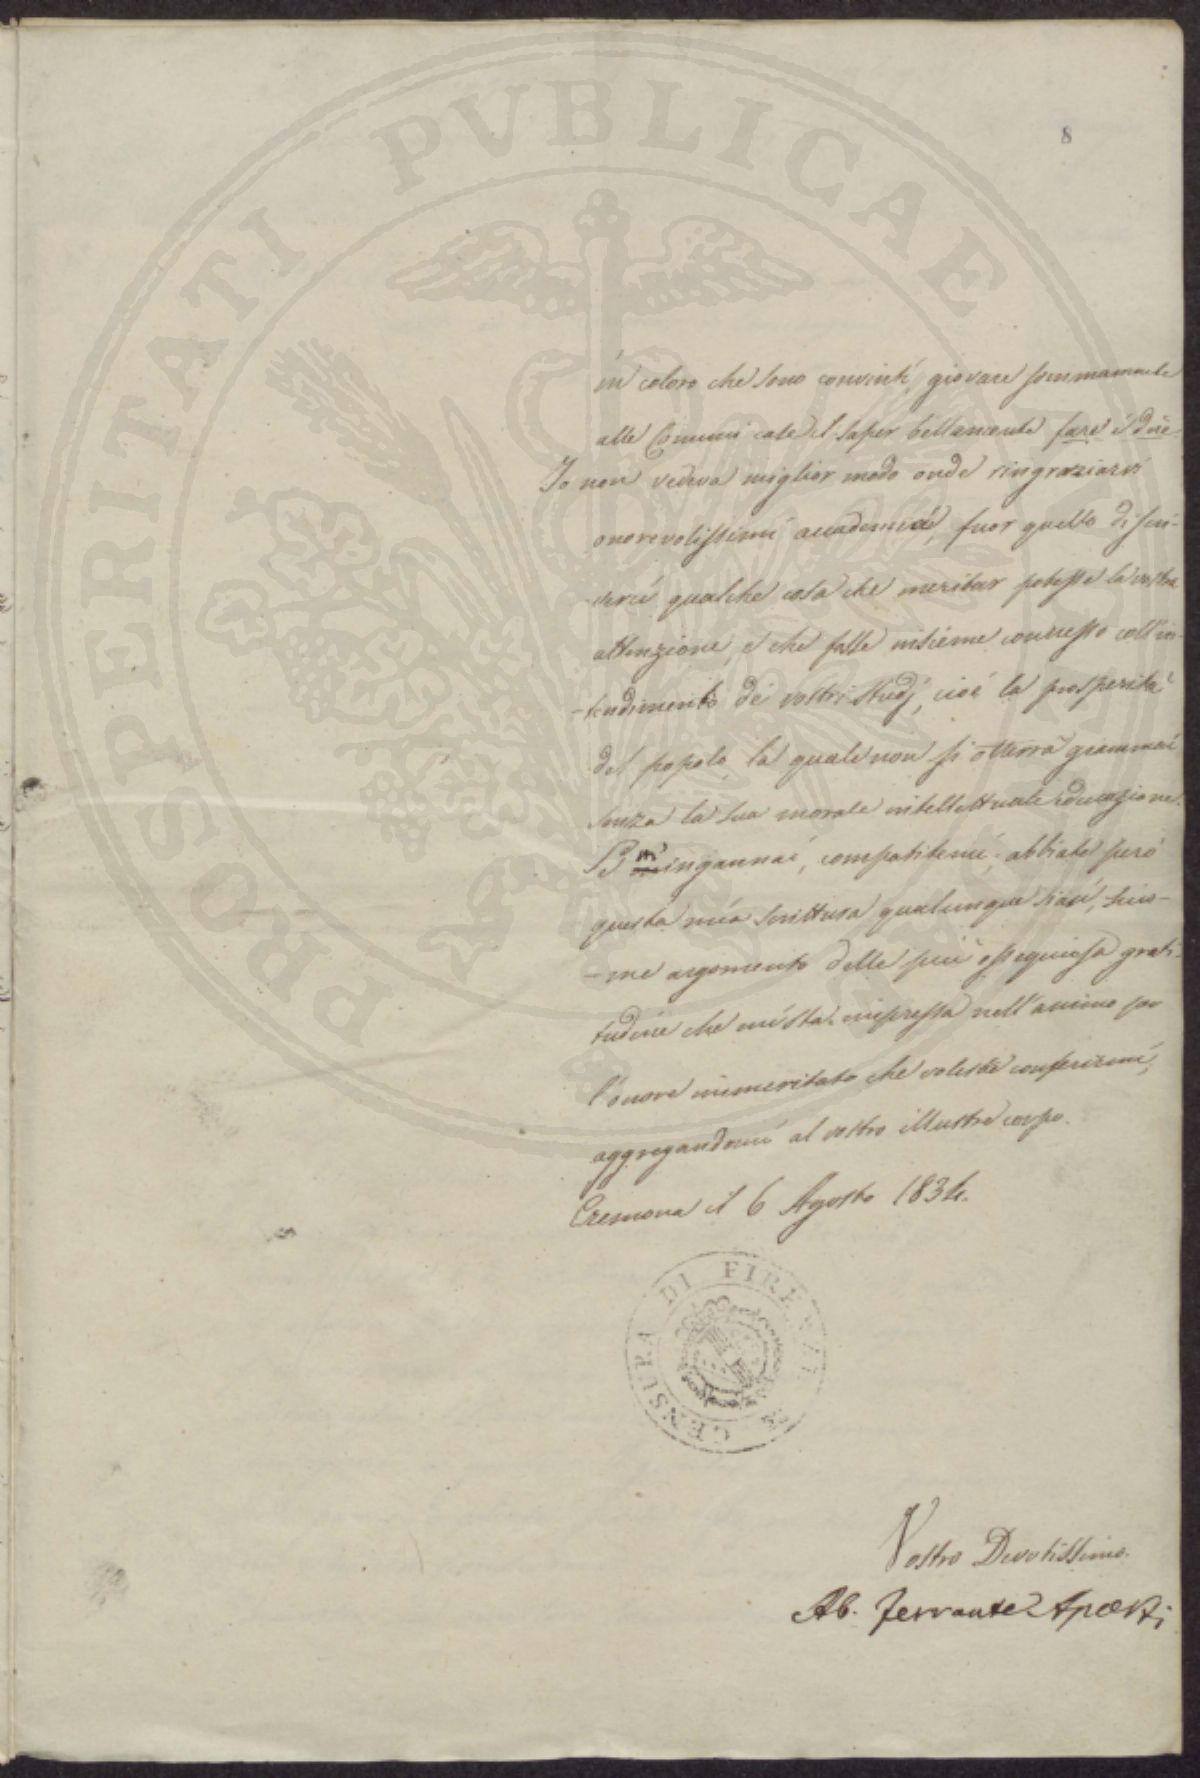 8
PROSPERITATI PUBLICAE
in coloro che sono convinti, giovare sommamente
alle Comuni il saper bellamente fare e dire
Io non vedeva miglior modo onde ringraziarvi
onorevolissimi accademici, fuor quello di scri-
-vervi qualche cosa che meritar potesse la vostra
attenzione, e che fosse insieme connesso coll'in-
-tendimento de' vostri studj, cioè la prosperità
del popolo, la quale non si otterrà giammai
senza la sua morale intellettuale educazione.
m'ingannai, compatitemi; abbiate però
questa mia scrittura qualunque siasi, sic-
-me argomento della più ossequiosa grati-
tudine che mi sta impressa nell'animo per
l'onore immeritato che voleste conferirmi,
aggregandomi al vostro illustre corpo.
Cremona il 6 Agosto 1834.
CENSURA DI FIRENZE
Vostro Devotissimo.
Ab. Ferrante Aporti